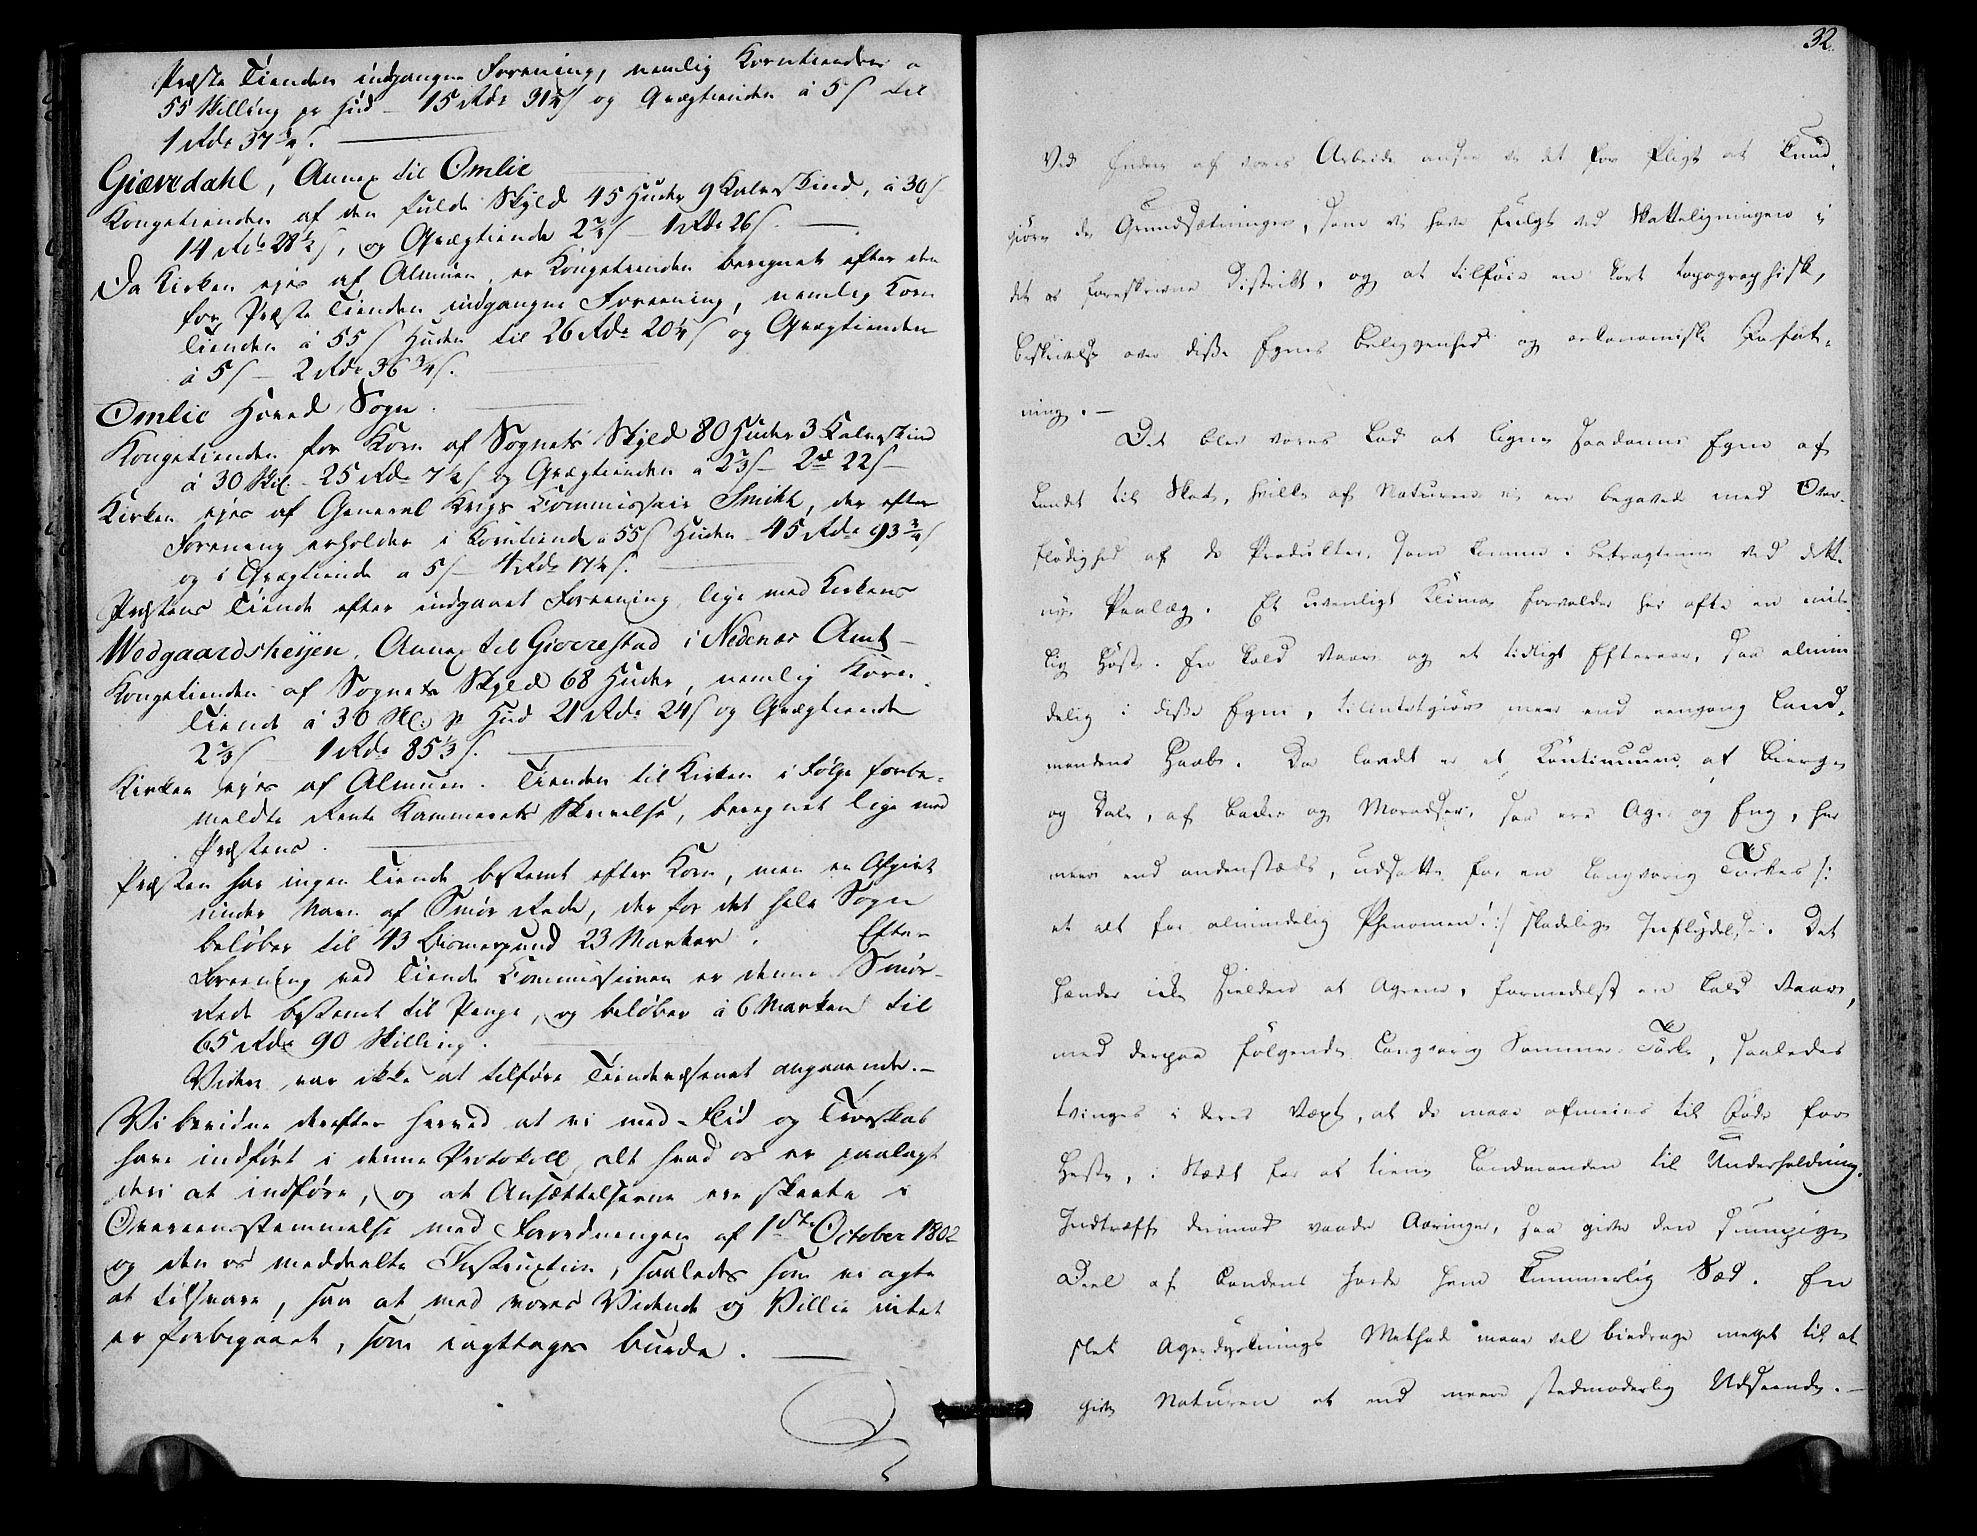 Præste Tienden indgangne Forening, nemlig Korntienden a
55 Skilling pr Hud – 15 Rdr 31¼ s og Qvægtienden à 5 s til
1 Rdr 37¾ s.
Gjævedahl, Annex til Omlie
Kongetienden af den fulde Skyld 45 Huder 9 Kalvskind, à 30 s
14 Rdr 28½ s, og Qvægtiende 2⅔ s – 1 Rdr 26 s. –
Da Kirken ejes af Almuen, er Kongetienden beregnet efter den
for Præste Tienden indgangne Foreening, nemlig Korn
Tienden à 55 s Huden til 26 Rdr 20¼ s og Qvægtienden
à 5 s – 2 Rdr 36¾ s.
Omlie Hoved Sogn.
Kongetienden for Korn af Sognets Skyld 80 Huder 3 Kalvskind
à 30 Skil: – 25 Rdr 7½ s og Qvægtienden a 2⅔ s – 2 rd 22 s –
Kirken ejes af General Krigs Commissair Smith, der efter
Forening erholder i Korntiende a 55 s Huden – 45 Rdr 93¾ s
og i Qvægtiende a 5 s – 4 Rdr 17¼ s.
Præstens Tiende efter indgaaet Foreening lige med Kirkens
Wedgaardsheijen, Annex til Gierrestad i Nedenes Amt –
Kongetienden af Sognets Skyld 68 Huder, nemlig Korn-
Tiende à 30 Sk: p Hud 21 Rdr 24 s og Qvægtiende
2⅔ s – 1 Rdr 85⅓ s.
Kirken ejes af Almuen. Tienden til Kirken i Følge forbe-
meldte Rente Kammerets Skrivelse, beregnet lige med
Præstens.
Præsten har ingen Tiende bestemt efter Korn, men en Afgivt
under Navn af Smør Rede, der for det hele Sogn
beløber til 43 Bismerpund 23 Marker. Efter
Foreening ved Tiende Commissionen er denne Smør-
Rede bestemt til Penge, og beløber à 6 Marken til
65 Rdr 90 Skilling.
Videre var ikke at tilføre Tiendevæsenet angaaende. –
Vi bevidne derefter herved at vi med Flid og Troeskab
have indført i denne Protokoll alt hvad os er paalagt
deri at indføre, og at Ansættelserne ere skeete i
Overeensstemmelse med Forordningen af 1ste October 1802
og den os meddeelte Instruxtion, saaledes som vi agte
at tilsvare, saa at med vores Vidende og Villie intet
er forbigaaet, som iagttages burde. –
32.
Ved Enden af vores Arbeide anser vi det for Pligt at kund-
giøre de Grundsætninger, som vi have fulgt ved Skatteligningen i
det os foreskrevne Distrikt, og at tilføie en kort topographisk,
beskrivelse over disse Egnes beliggenhed og oekonomiske Forfat-
ning. –
Det blev vores Lod at ligne saadanne Egne af
Landet til Skat, hvilke af Naturen ei ere begavede med Over-
flødighed af de Produkter, som komme i betragtning ved dette
nye Paalæg. Et uvenligt Klima forvolder her ofte en mis-
lig Høst. En kold Vaar og et tidligt Efteraar, saa almin
delig i disse Egne, tilintetgiøre meer end eengang Land-
mandens Haab. Da landet er et Kontinuum af Bierge
og Dale, af Bakker og Moradser, saa ere Ager og Eng, her
meer end andenstæds, udsatte for en langvarig Tørkes /:
et alt for almindelig Phenomen! :/ skadelige Inflydelse. Det
hænder ikke sielden at Agrene, formedelst en kold Vaar,
med derpaa følgende langvarig Sommer-Tørke, saaledes
tvinges i deres Væxt, at de maae afmeies til Føde for
Heste, i Stædet for at tiene Landmanden til Underholdning.
Indtræffe derimod vaade Aaringer, saa giver den sumpige
Deel af Landens Jorde ham kummerlig Sæd. En
slet Agerdyrknings Methode maae vel bidrage meget til at
give Naturen et end meere stedmoderlig Udseende. –